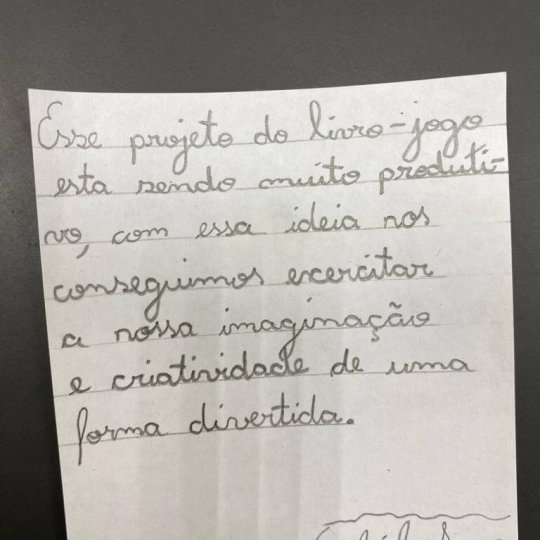 Esse projeto do livro-jogo
esta sendo muito produti-
vo, com essa ideia nos
conseguimos excercitar
a nossa imaginação
e criatividade de uma
forma divertida.